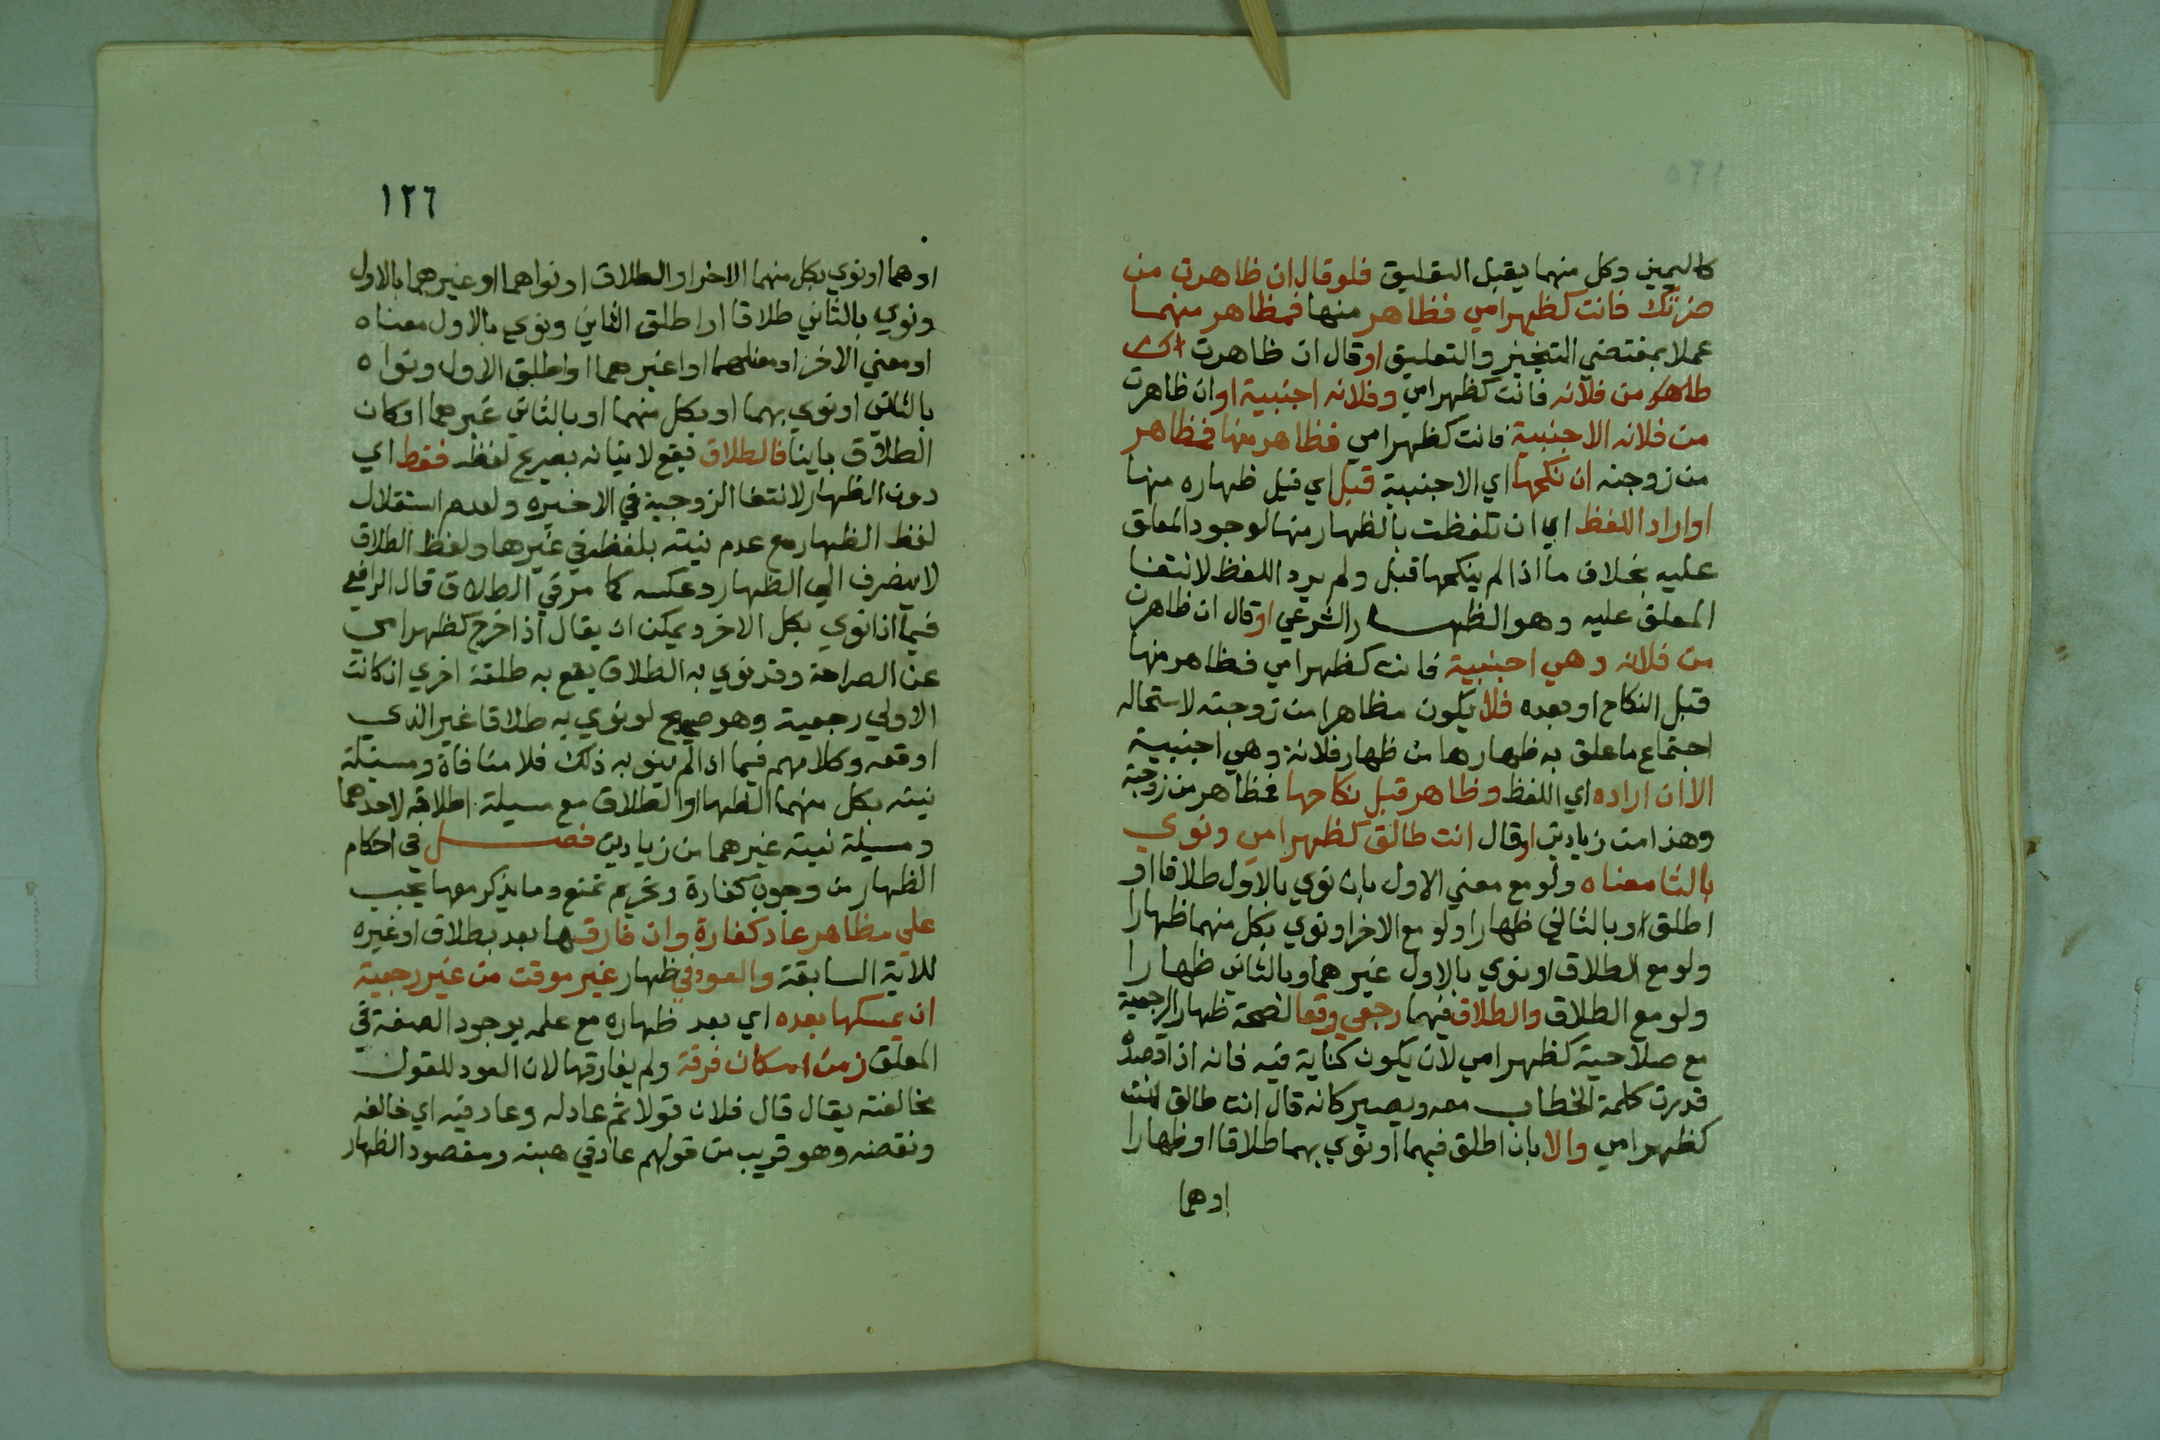 كاليمين وكل منهما يقبل التعليق فلو قال ان ظاهرت من
ضرتك فانت كظهر امي فظاهر منها فمظاهر منهما
عملا بمقتضي التنجيز والتعليق او قال ان ظاهرت
من فلانه فانت كظهر امي وفلانه اجنبية او ان ظاهرت
من فلانه الاجنبية فانت كظهر امي فظاهر منها فمظاهر
من زوجته ان نكحها اي الاجنبية قبل اي قبل ظهاره منها
او اراد اللفظ اي ان تلفظت بالظهار منها لوجود المعلق
عليه بخلاف ما اذا لم ينكحها قبل ولم يرد اللفظ لانتفا
المعلق عليه وهو الظهار الشرعي او قال ان ظاهرت
من فلانه وهي اجنبية فانت كظهر امي فظاهر منها
قبل النكاح او بعده فلا يكون مظاهرا من زوجته لاستحاله
اجتماع ما علق به ظهارها من ظهار فلانة وهي اجنبية
الا ان اراده اي اللفظ وظاهر قبل نكاحها فمظاهر من زوجته
وهذا من زيادتي او قال انت طالق كظهر امي ونوي
بالثا معناه ولو مع معني الاول بان نوي بالاول طلاقا او
اطلق او بالثاني ظهارا ولو مع الاخر او نوي بكل منهما ظهارا
ولو مع الطلاق او نوي بالاول غيرهما وبالثاني ظهارا
ولو مع الطلاق والطلاق فيهما رجعي وقعا لصحة ظهار الرجعية
مع صلاحية كظهر امي لان يكون كناية فيه فانه اذا قصده
قدرت كلمة الخطاب معه ويصير كانه قال انت طالق انت
كظهر امي والا بان اطلق فيهما او نوي بهما طلاقا او ظهارا
او هما
١٢٦
او هما او نوي بكل منهما الاخر او الطلاق او نواهما او غيرهما بالاول
ونوي بالثاني طلاقا او اطلق الثاني ونوي بالاول معناه
او معني الاخر او معناهما او غيرهما او اطلق الاول ونواه
بالثاني او نوي بهما او بكل منهما او بالثاني غيرهما او كان
الطلاق باينا فالطلاق يقع لاتيانه بصريح لفظه فقط اي
دون الظهار لانتفا الزوجية في الاخيره ولعدم استقلال
لفظ الظهار مع عدم نيته بلفظه في غيرها ولفظ الطلاق
لا ينصرف الي الظهار وعكسه كما مر في الطلاق قال الرافعي
فيما اذا نوي بكل الاخر ويمكن ان يقال اذا خرج كظهر امي
عن الصراحة وقد نوي به الطلاق يقع به طلقة اخري ان كانت
الاولي رجعية وهو صحيح لو نوي به طلاقا غير الذي
اوقعه وكلامهم فيما اذا لم ينو به ذلك فلا منافاة ومسئلة
نيته بكل منهما الظهار او الطلاق مع مسيلة اطلاقه لاحدهما
ومسيلة نيته غيرهما من زيادتي فصل في احكام
الظهار من وجوب كفارة وتحريم تمتع وما يذكر معها يجب
علي مظاهر عاد كفارة وان فارقها بعد بطلاق او غيره
للاية السابقة والعود في ظهار غير موقت من غير رجعية
ان يمسكها بعده اي بعد ظهاره مع علمه بوجود الصفة في
المعلق زمن امكان فرقة ولم يفارقها لان العود للقول
مخالفته يقال قال فلان قولا ثم عاد له وعاد فيه اي خالفه
ونقضه وهو قريب من قولهم عاد في هبته ومقصود الظهار